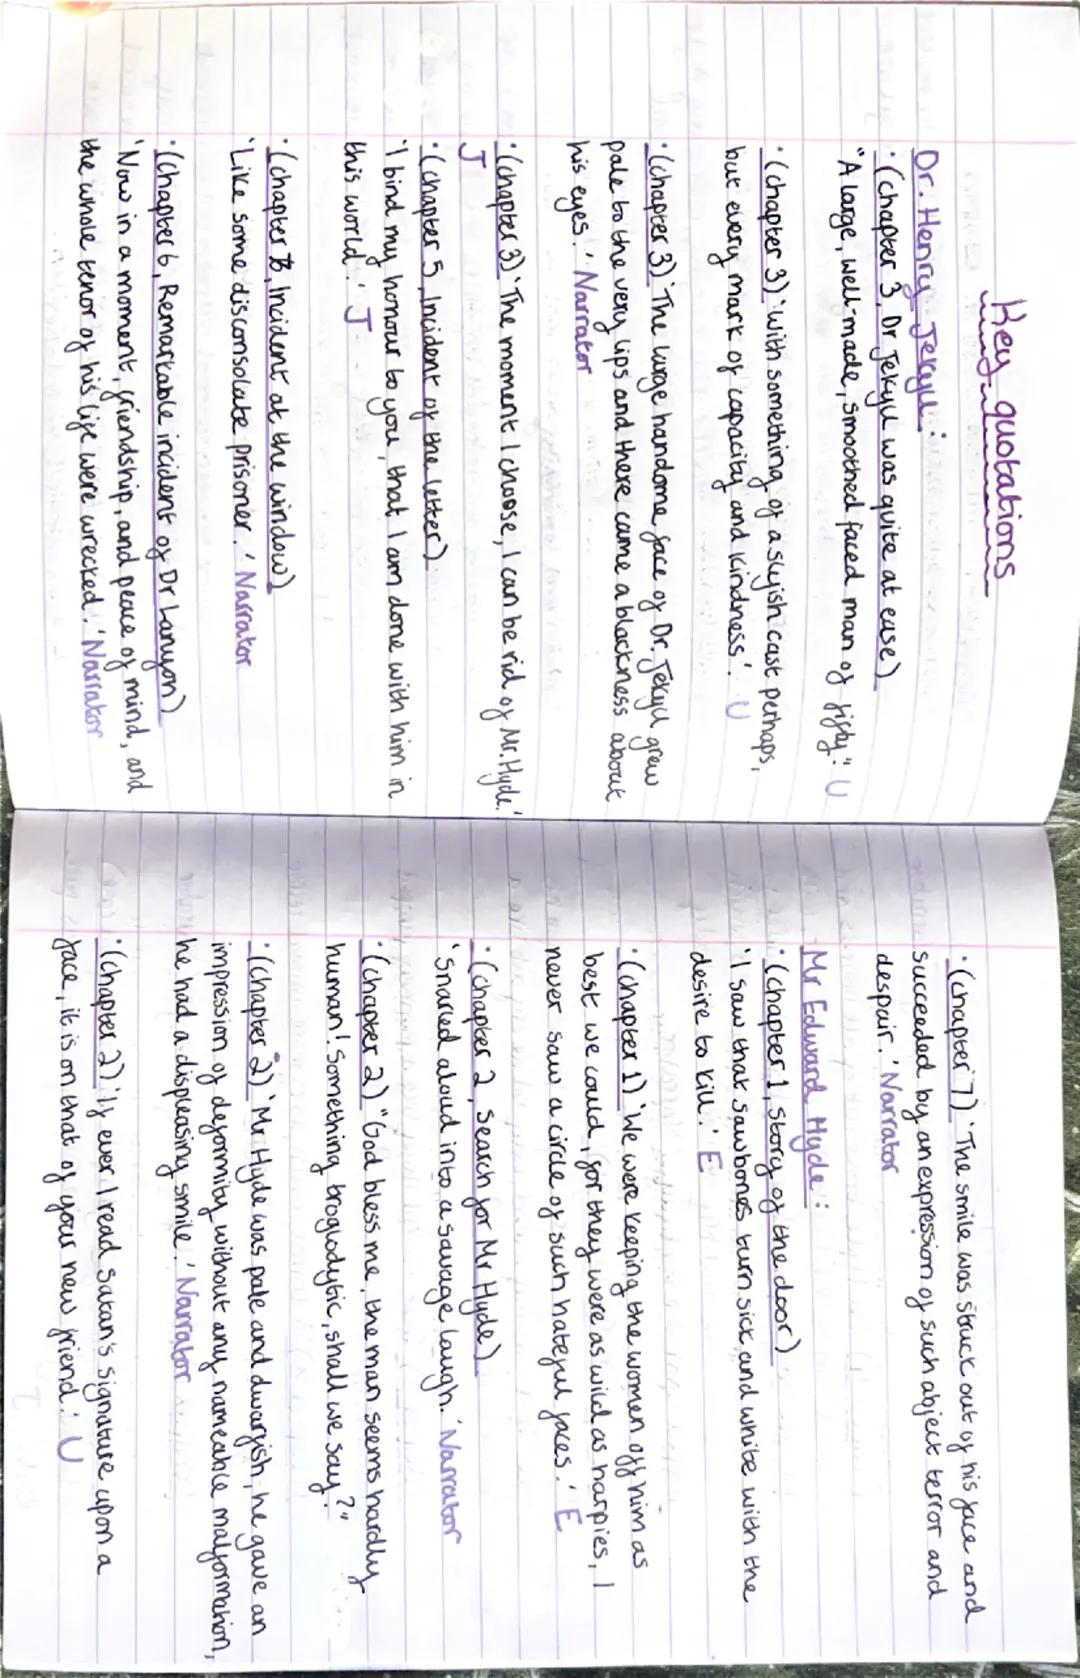 Key quotations
Dr. Henry Jekyll:
·(chapter 3, Dr Jekyll was quite at ease)
"A large, well-made, smoothed faced man of fifty." U
·(chapter 3) 'with something of a slyish cast perhaps,
but every mark of capacity and kindness'. U
·(chapter 3) 'The large handome face of Dr. Jekyll grew
pale to the very lips and there came a blackness about
his eyes.' Narrator
·(chapter 3) 'The moment I choose, I can be rid of Mr. Hyde.'
J
·(chapter 5, Incident of the letter)
'I bind my honour to you, that I am done with him in
this world.' J
·(chapter 7, Incident at the window)
'Like some disconsolate prisoner.' Narrator
·(chapter 6, Remarkable incident of Dr Lanyon)
'Now in a moment, friendship, and peace of mind, and
the whole tenor of his life were wrecked.' Narrator
·(chapter 7) 'The smile was struck out of his face and
succeeded by an expression of such abject terror and
despair.' Narrator
Mr Edward Hyde:
·(chapter 1, story of the door)
'I saw that sawbones turn sick and white with the
desire to kill.' E
·(chapter 1) 'We were keeping the women off him as
best we could, for they were as wild as harpies, I
never saw a circle of such hateful faces.' E
·(chapter 2, search for Mr Hyde)
'Snarled aloud into a savage laugh.' Narrator
·(chapter 2) "God bless me, the man seems hardly
human! Something troglodytic, shall we say?"
·(chapter 2) 'Mr Hyde was pale and dwarfish, he gave an
impression of deformity without any nameable malformation,
he had a displeasing smile.' Narrator
·(chapter 2) 'If ever I read satan's signature upon a
face, it is on that of your new friend.' U